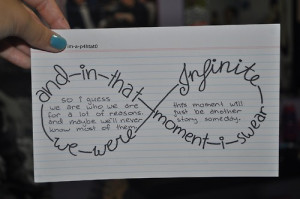 and-in-that
moment-i-swear
we-were
Infinite
so I guess
we are who we are
for a lot of reasons.
and maybe we'll never
know most of them
this moment will
just be another
story someday.